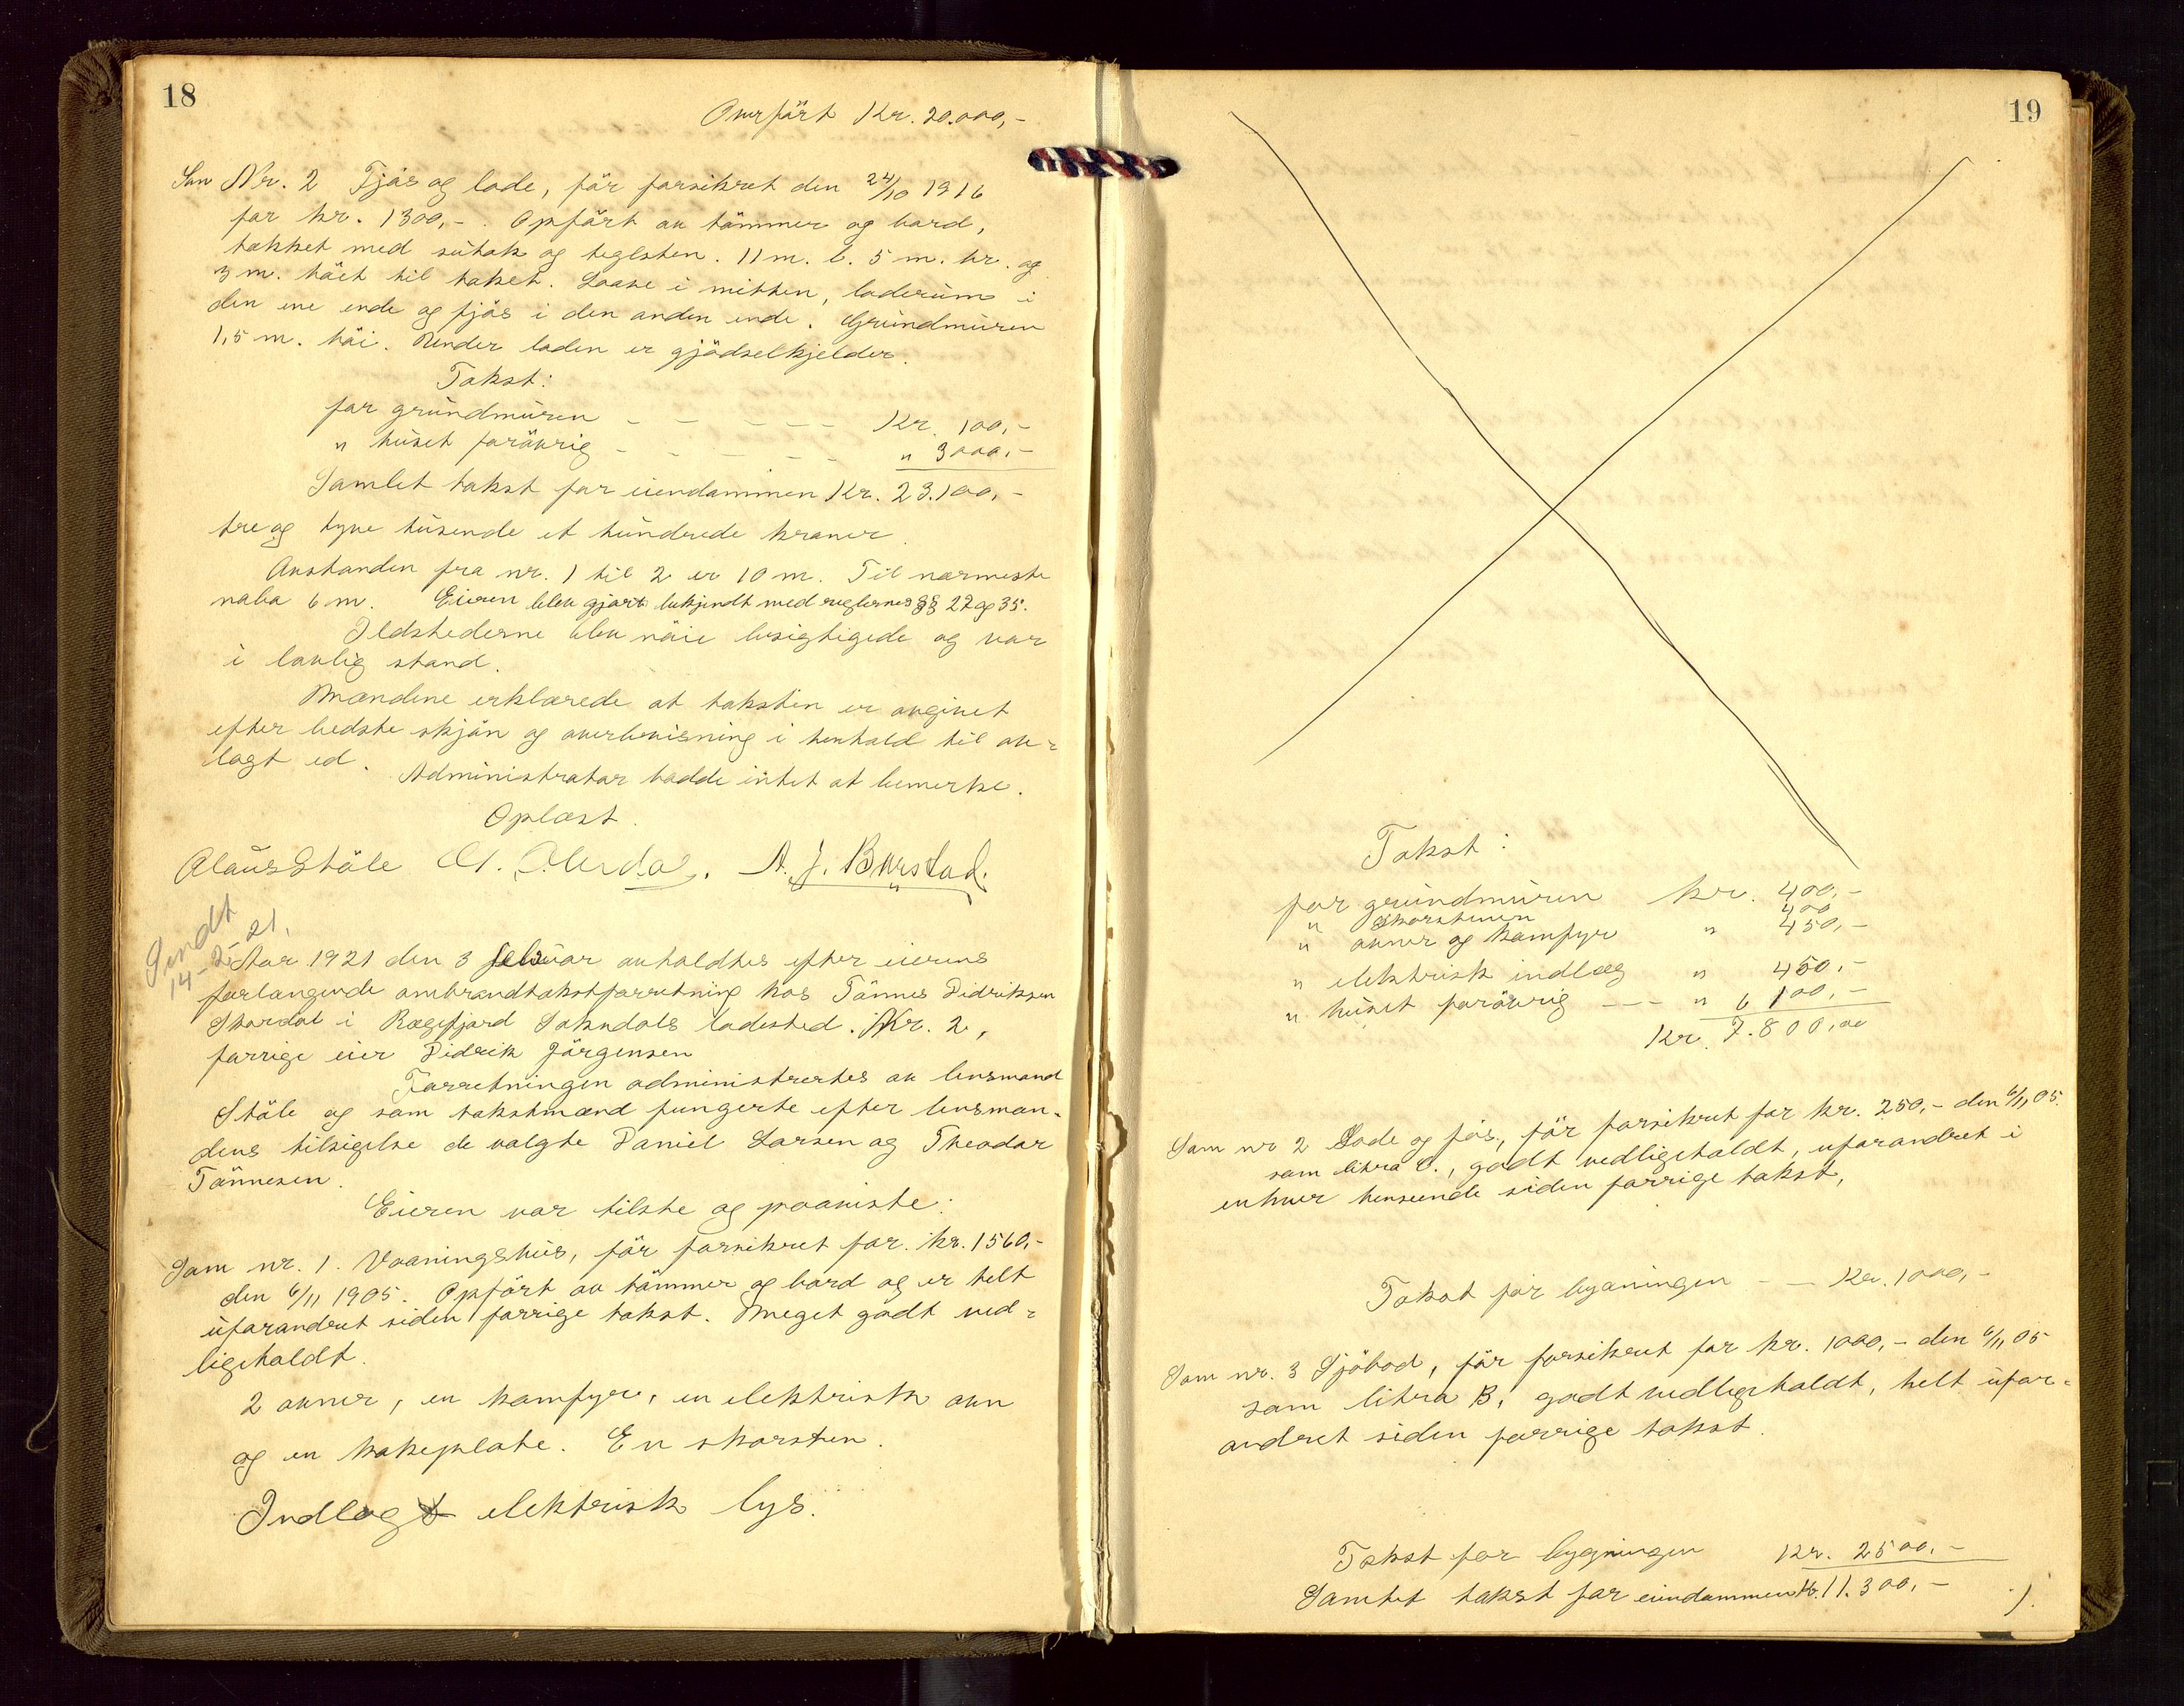 18
Overfört Kr. 20.000,-
Som Nr. 2 Fjös og lade, för forsikret den 24/10 1916
for kr. 1300,-. Opfört av tömmer og bord,
tækket med sutak og teglsten. 11 m. l. 5 m. br. og
3 m. höit til taket. Laave i mitten, laderum i
den ene ende og fjös i den anden ende. Grundmuren
1,5 m. höi. Under laden er gjödselkjelder.
Takst:
for grundmuren - - - - - Kr. 100,-
" huset forövrig - - - - - " 3000,-
Samlet takst for eiendommen Kr. 23.100,-
tre og tyve tusende et hundrede kroner.
Avstanden fra nr. 1 til 2 er 10 m. Til nærmeste
nabo 6 m. Eieren blev gjort bekjendt med reglernes §§ 27 og 35.
Ildstederne blev nöie besigtigede og var
i lovlig stand.
Mændene erklærede at taksten er avgivet
efter bedste skjön og overbevisning i henhold til av-
lagt ed. Administrator hadde intet at bemerke.
Oplæst.
Olaus Ståle A. J. Barstad.
Sendt
14-2-21.
Aar 1921 den 3 februar avholdtes efter eierens
forlangende ombrandtakstforretning hos Tönnes Didriksen
Skardal i Rægefjord Soknedals ladested. Nr. 2,
forrige eier Didrik Jörgensen
Forretningen administrertes av lensmand
Ståle og som takstmænd fungerte efter lensman-
dens tilsigelse de valgte Daniel Larsen og Theodor
Tönnesen.
Eieren var tilstede og paaviste:
Som nr. 1. Vaaningshus, för forsikret for kr. 1560,-
den 6/11 1905. Opfört av tömmer og bord og er helt
uforandret siden forrige takst. Meget godt ved-
ligeholdt.
2 ovner, en komfyr, en elektrisk ovn
og en kokeplate. En skorsten.
Indlagt elektrisk lys.
19
Takst:
for grundmuren kr. 400,-
" skorstenen 400
" ovner og komfyr " 450,-
" elektrisk indlæg " 450,-
" huset forövrig --- " 6100,-
Kr. 7.800,00
Som nr 2 Lade og fjös, för forsikret for kr. 250,- den 6/11 05.
som litra C., godt vedligeholdt, uforandret i
enhver henseende siden forrige takst,
Takst for bygningen - - Kr. 1000,-
Som nr. 3 Sjöbod, för forsikret for kr. 1000,- den 6/11 05
som litra B, godt vedligeholdt, helt ufor-
andret siden forrige takst.
Takst for bygningen Kr. 2500,-
Samlet takst for eiendommen Kr. 11.300,-